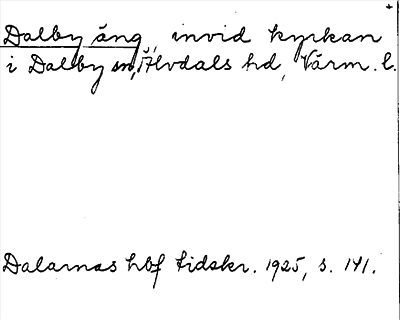 Dalby äng, invid kyrkan
i Dalby sn, Älvdals hd, Värm. l.
Dalarnas hbf tidskr. 1925, s. 141.